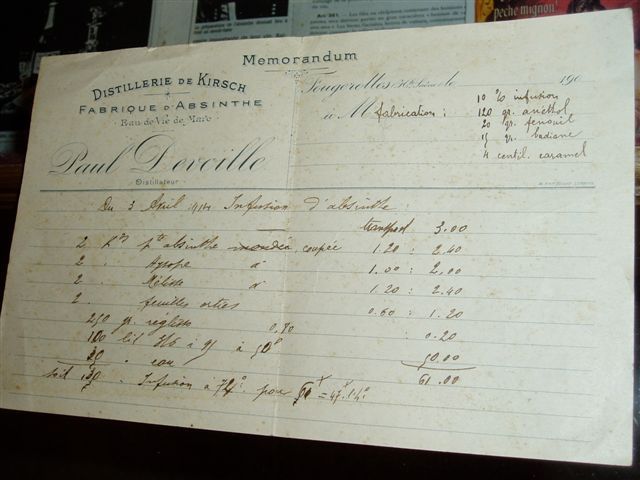 pêche mignon!
Memorandum
DISTILLERIE DE KIRSCH
FABRIQUE D'ABSINTHE
Eau-de-Vie de Marc
Paul Devoille
Distillateur
Fougerolles, Hte Saône, le 190
à M
fabrication : 10 % infusion
120 gr. anéthol
20 gr. fenouil
15 gr. badiane
4 centil. caramel
Du 3 April 1914 Infusion d'absinthe :
transport 3.00
2 pte absinthe mondée coupée 1.20 : 2.40
2 " Hysope d° 1.00 : 2.00
2 " Mélisse d° 1.20 : 2.40
2 " feuilles orties 0.60 : 1.20
250 gr. réglisse 0.80 : 0.20
100 lit 3/6 à 95 à 50° 50.00
30 " eau 61.00
soit 130 " Infusion à 72°